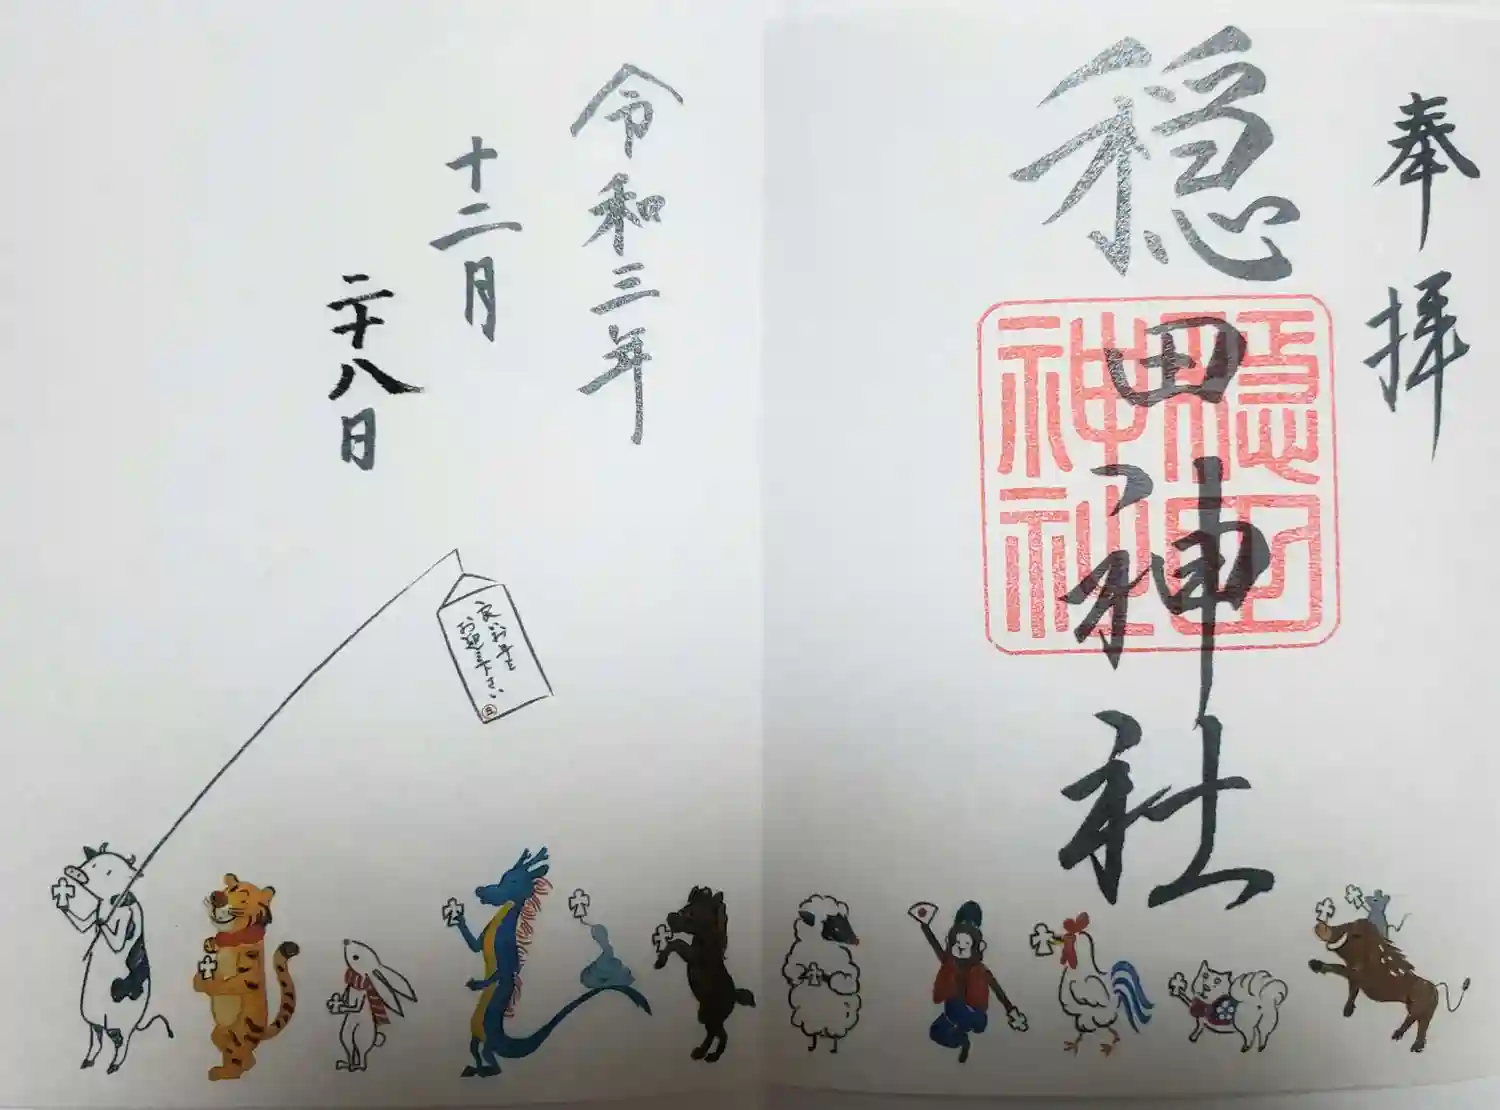 奉拝
穏田神社
穏田
神社
令和三年
十二月
二十八日
良いお年を
お迎え下さい